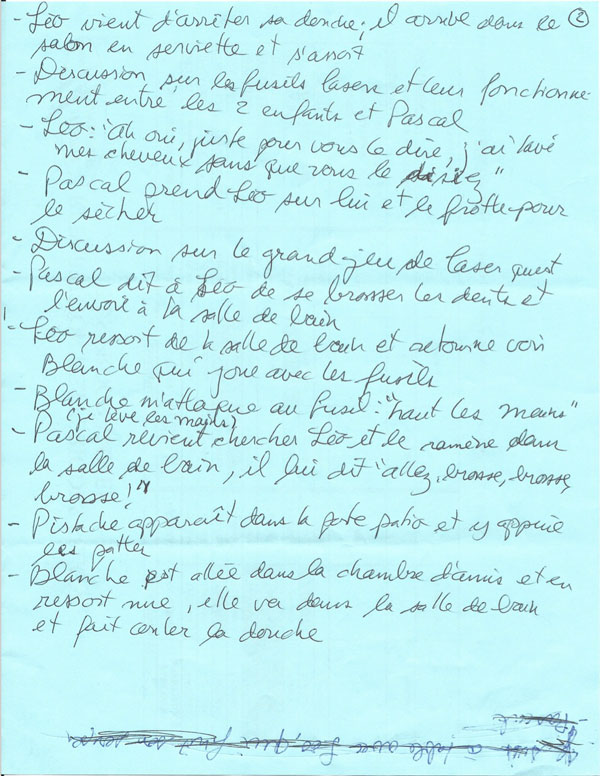 - Léo vient d'arrêter sa douche; il arrive dans le ②
salon en serviette et s'assoit
- Discussion sur les fusils lasers et leur fonctionne-
ment entre les 2 enfants et Pascal
- Léo: "Ah oui, juste pour vous le dire, j'ai lavé
mes cheveux sans que vous le disiez"
- Pascal prend Léo sur lui et le frotte pour
le sécher
- Discussion sur le grand jeu de laser quest
- Pascal dit à Léo de se brosser les dents et
l'envoie à la salle de bain
- Léo ressort de la salle de bain et retourne voir
Blanche qui joue avec les fusils
- Blanche m'attaque au fusil: "haut les mains"
(je lève les mains)
- Pascal revient chercher Léo et le ramène dans
la salle de bain, il lui dit "allez, brosse, brosse,
brosse!"
- Pistache apparaît dans la porte patio et y appuie
les pattes
- Blanche est allée dans la chambre d'amis et en
ressort nue, elle va dans la salle de bain
et fait couler la douche